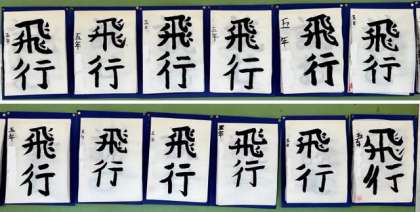 飛行
五年
飛行
飛行
飛行
五年
飛行
飛行
五年
飛行
飛行
飛行
五年
飛行
飛行
五年
飛行